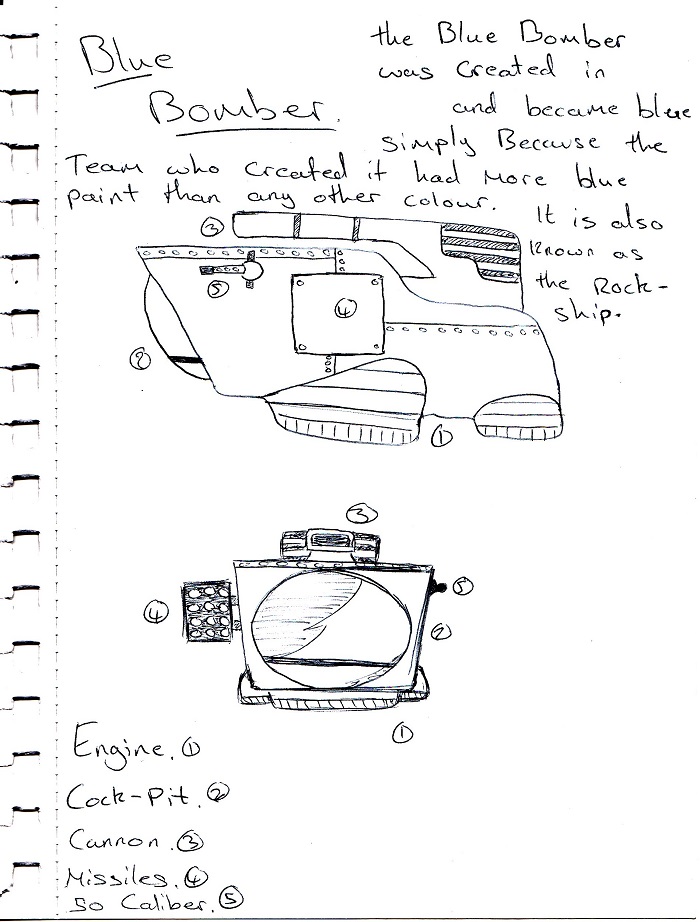 Blue
Bomber.
the Blue Bomber
was created in
and became blue
simply Because the
Team who created it had more blue
paint than any other colour.
It is also
known as
the Rock-
ship.
3
5
4
2
1
3
4
5
2
1
Engine. 1
Cock-Pit. 2
Cannon. 3
Missiles. 4
50 Caliber. 5